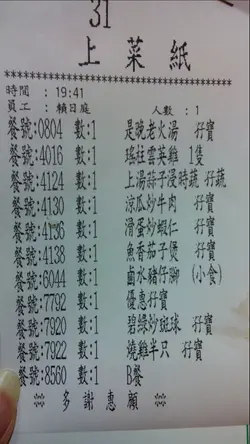 31
上菜紙
************************
時間 : 19:41
員工 : 賴日庭 人數 : 1
餐號:0804 數:1 是晚老火湯 孖寶
餐號:4016 數:1 瑤柱雲英雞 1隻
餐號:4124 數:1 上湯蒜子浸時蔬 孖蔬
餐號:4130 數:1 涼瓜炒牛肉 孖寶
餐號:4136 數:1 滑蛋炒蝦仁 孖寶
餐號:4138 數:1 魚香茄子煲 孖寶
餐號:6044 數:1 鹵水豬仔腳 (小食)
餐號:7792 數:1 優惠孖寶
餐號:7920 數:1 碧綠炒斑球 孖寶
餐號:7922 數:1 燒雞半只 孖寶
餐號:8560 數:1 B餐
多謝惠顧